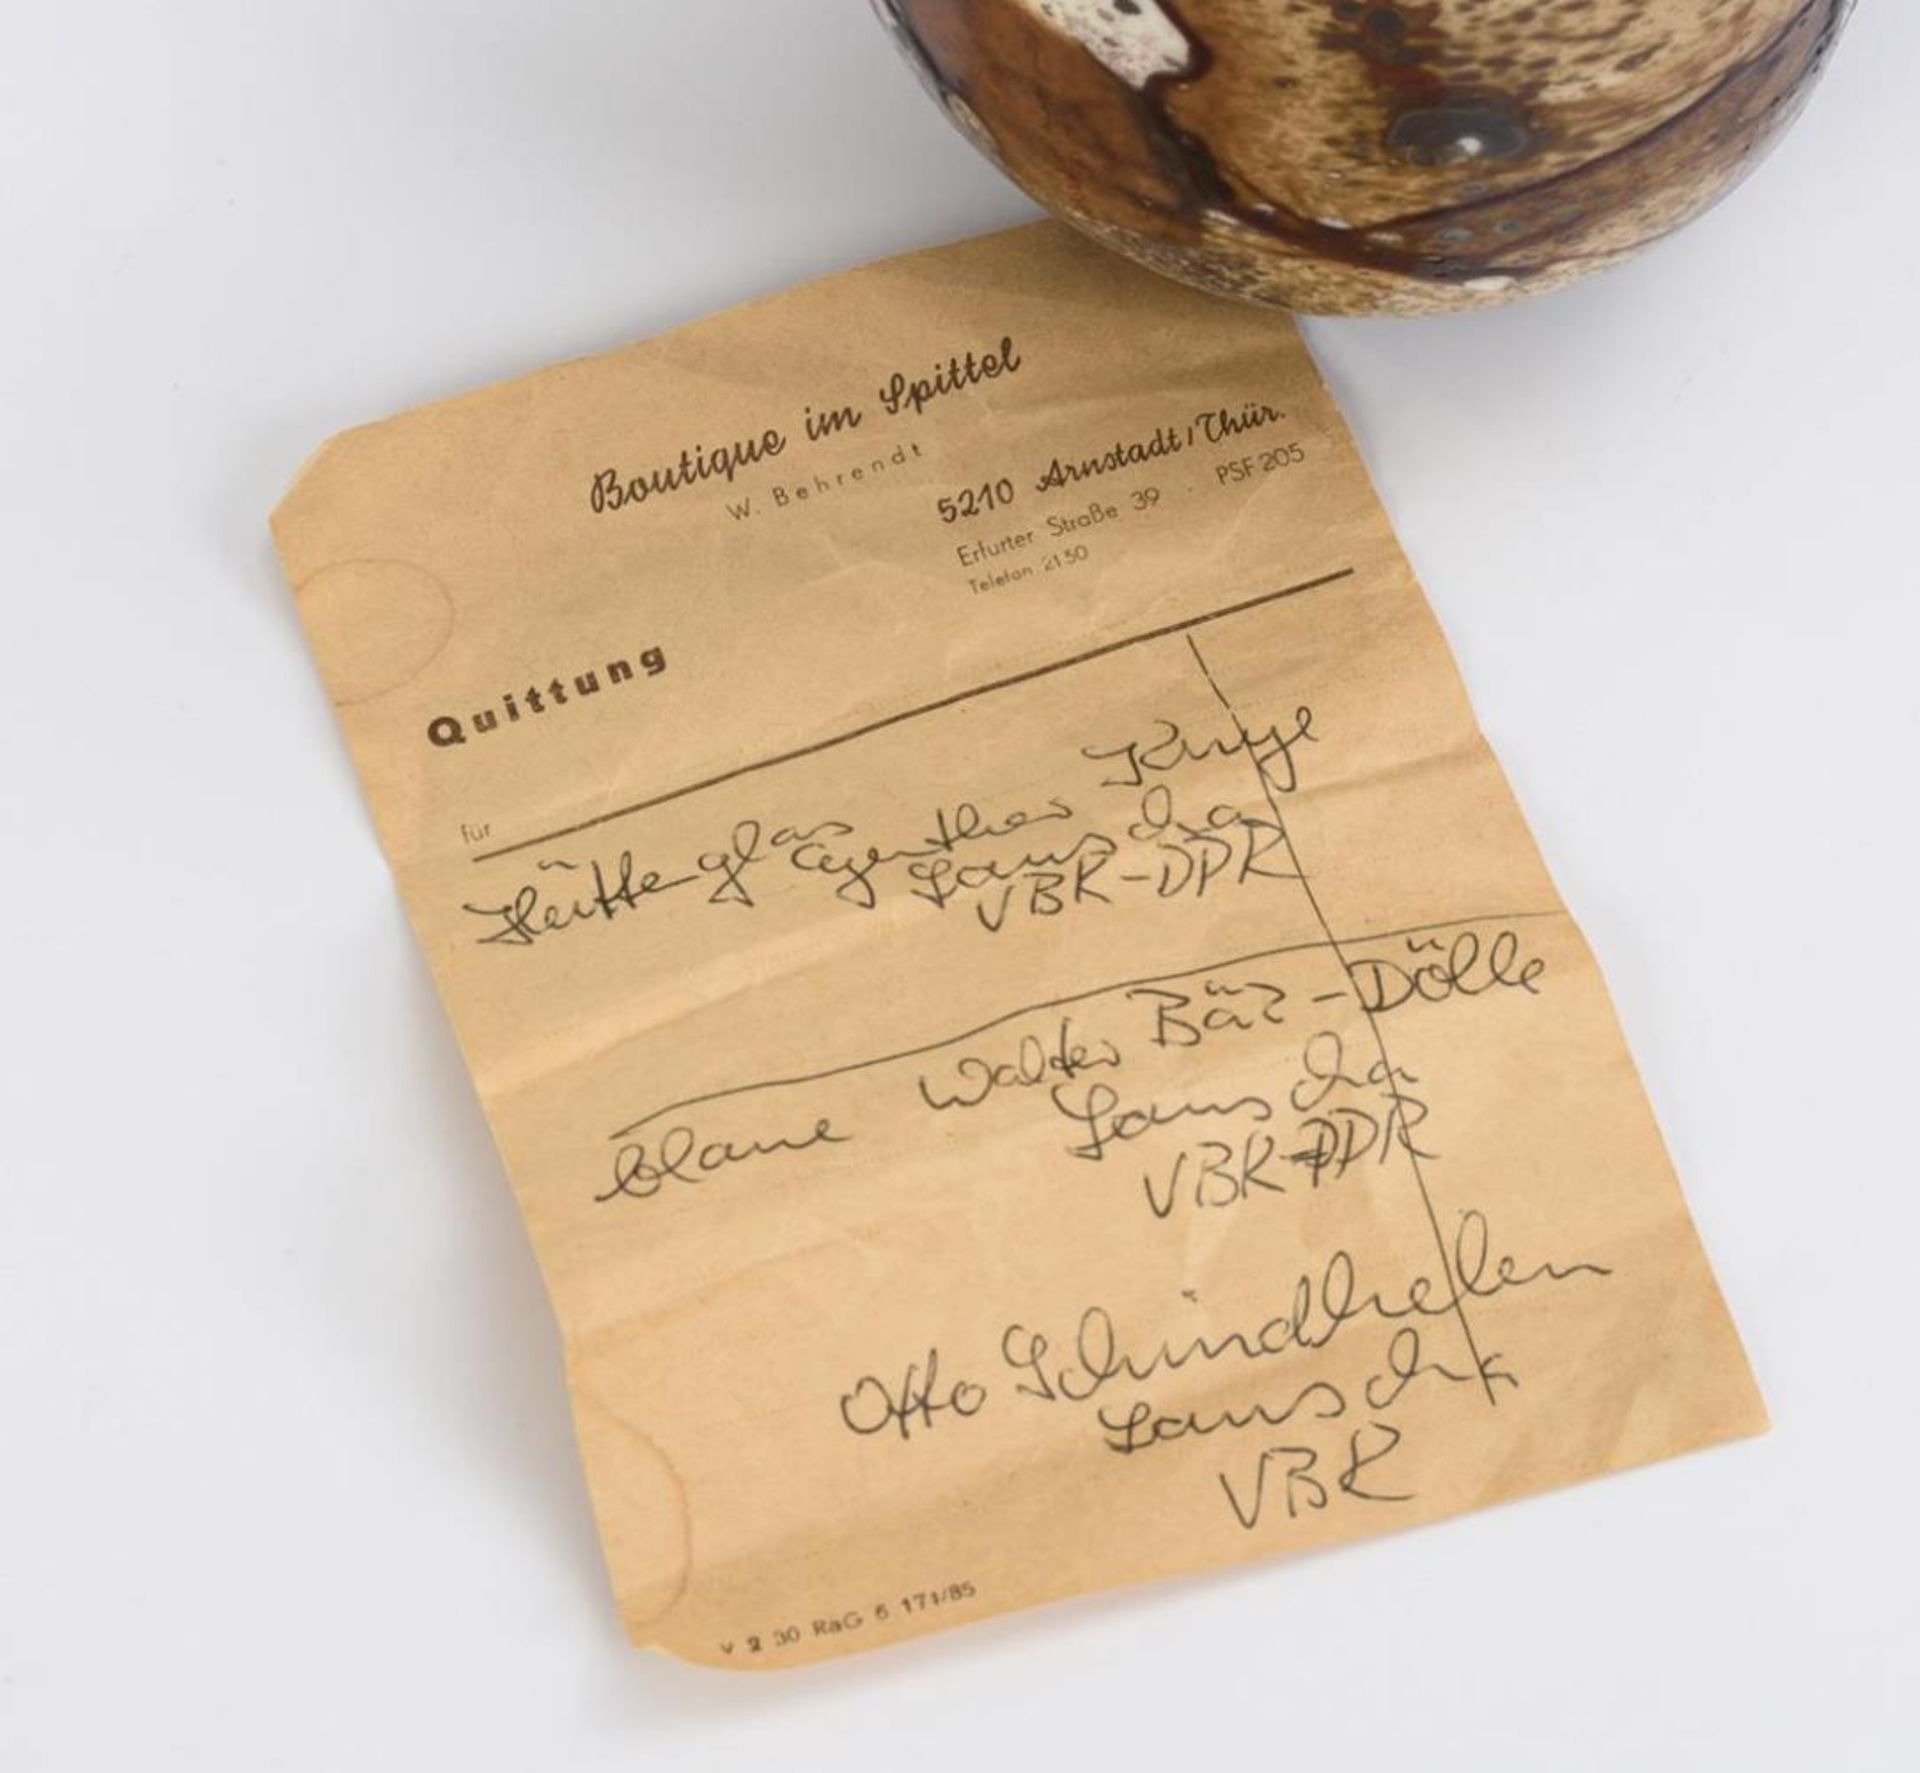 Boutique im Spittel
W. Behrendt
5210 Arnstadt/Thür.
Erfurter Straße 39 · PSF 205
Telefon 2150
Quittung
für
Hütteglas Kunze
Lauscha
VBK-DDR
Walter Bäz-Dölle
blaue Lauscha
VBK-DDR
Otto Schindhelm
Lauscha
VBK
V 2 30 RaG 6 171/85